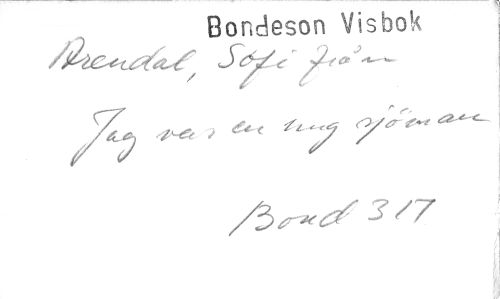 Bondeson Visbok
Arendal, Sofi från
Jag var en ung sjöman
Bond 317